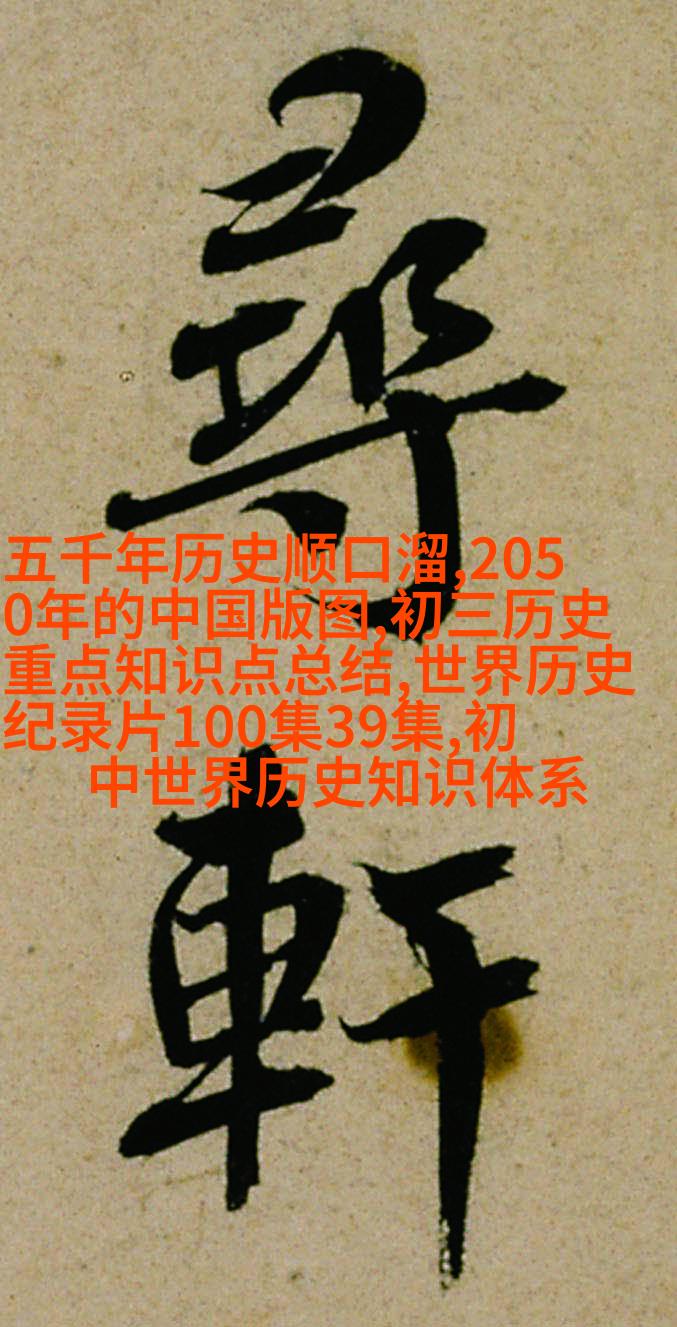 尋
軒
五千年历史顺口溜,205
0年的中国版图,初三历史
重点知识点总结,世界历史
纪录片100集39集,初
中世界历史知识体系